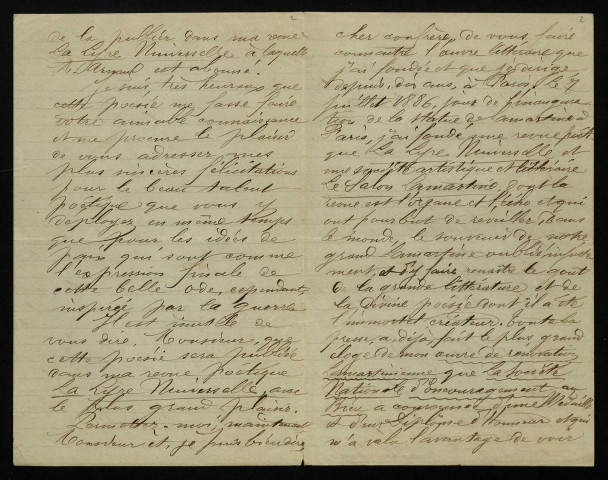 2
de la publier dans ma revue
La Lyre Universelle à laquelle
M. Arnaud est abonné.
Je suis très heureux que
cette poésie me fasse faire
votre aimable connaissance
et me procure le plaisir
de vous adresser mes
plus sincères félicitations
pour le beau talent
poétique que vous y
déployez en même temps
que pour les idées de
paix qui sont comme
l'expression finale de
cette belle ode, cependant
inspirée par la guerre
Il est inutile de
vous dire, Monsieur, que
cette poésie sera publiée
dans ma revue poétique
La Lyre Universelle, avec
le plus grand plaisir.
Permettez-moi, maintenant
Monsieur et, je puis bien dire,
2
cher confrère, de vous faire
connaître l'œuvre littéraire que
j'ai fondée et que je dirige
depuis dix ans, à Paris. Le 7
juillet 1886, jour de l'inaugura-
tion de la statue de Lamartine à
Paris, j'ai fondé une revue poéti-
que La Lyre Universelle et
une société artistique et littéraire
le Salon Lamartine, dont la
revue est l'organe et l'écho et qui
ont pour but de réveiller, dans
le monde, le souvenir de notre
grand Lamartine oublié injuste-
ment, et d'y faire renaître le goût
de la grande littérature et de
la divine poésie dont il a été
l'immortel créateur. Toute la
presse a, déjà, fait le plus grand
éloge de mon œuvre de rénovation
Lamartinienne que la Société
Nationale d'Encouragement au
Bien a couronnée d'une Médaille
et d'un Diplôme d'Honneur et qui
m'a valu l'avantage de voir